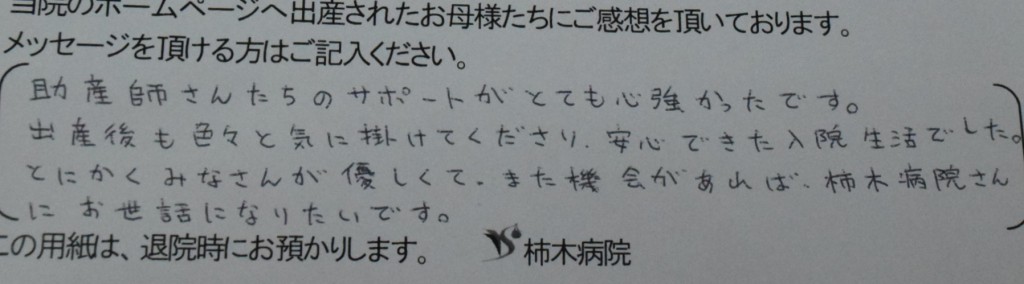 当院のホームページへ出産されたお母様たちにご感想を頂いております。
メッセージを頂ける方はご記入ください。
助産師さんたちのサポートがとても心強かったです。
出産後も色々と気に掛けてくださり、安心できた入院生活でした。
とにかくみなさんが優しくて、また機会があれば、柿木病院さん
にお世話になりたいです。
この用紙は、退院時にお預かりします。 柿木病院